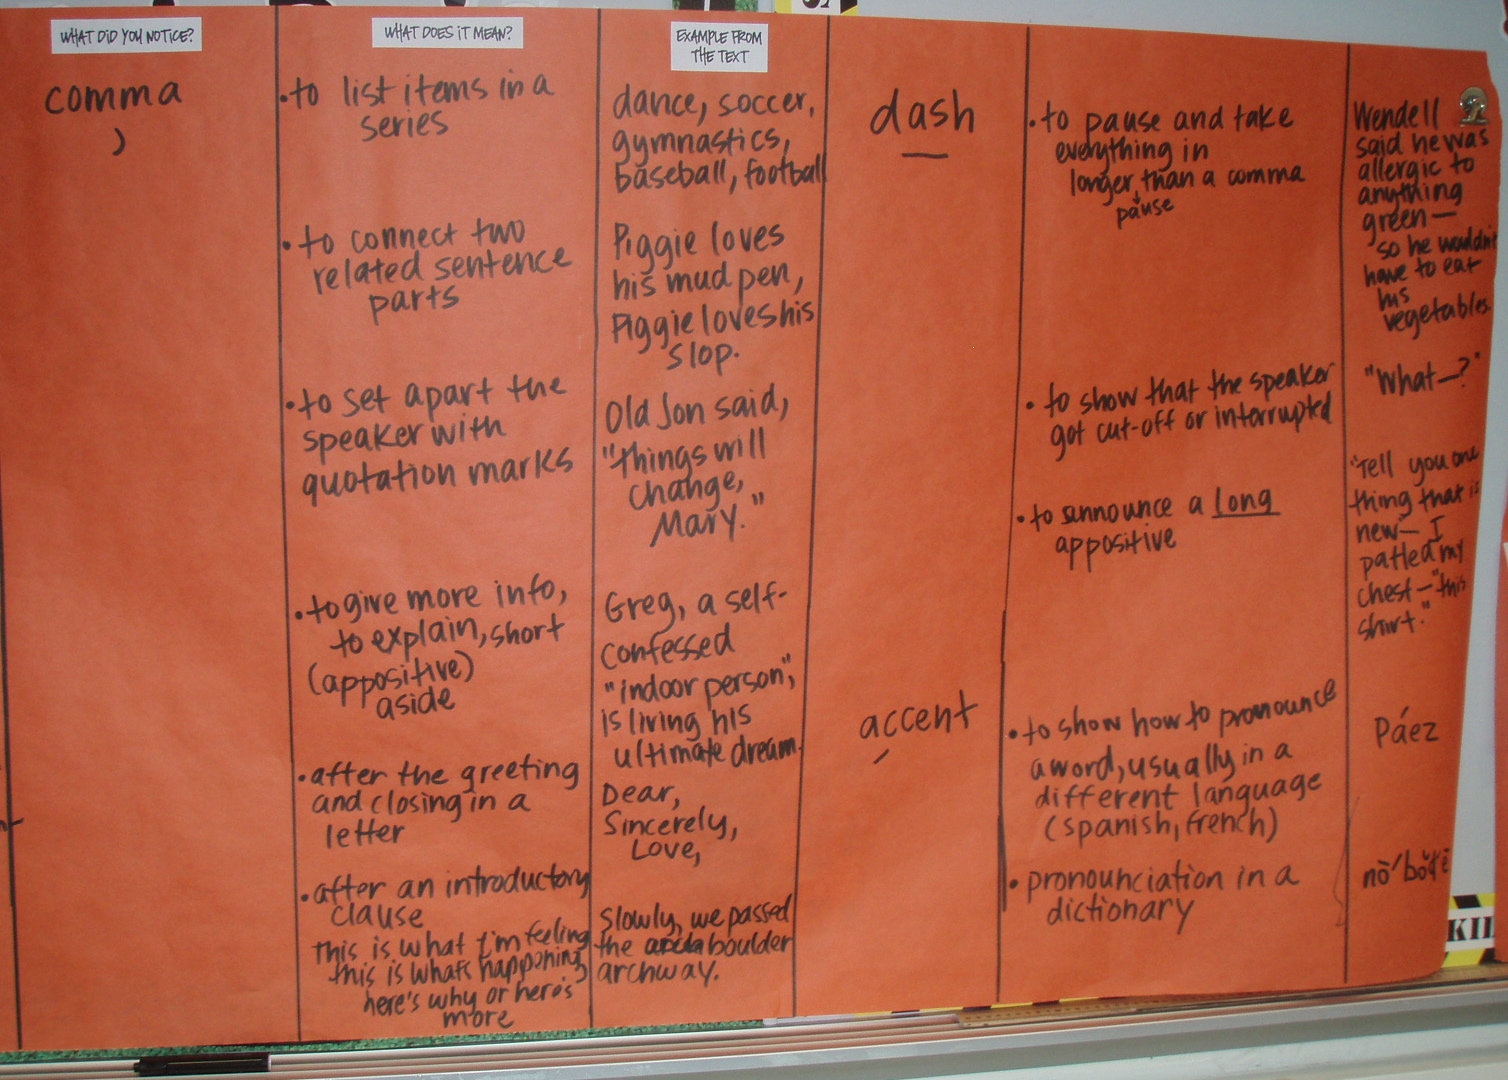 WHAT DID YOU NOTICE?
WHAT DOES IT MEAN?
EXAMPLE FROM
THE TEXT
comma
,
• to list items in a
series
dance, soccer,
gymnastics,
baseball, football
• to connect two
related sentence
parts
Piggie loves
his mud pen,
Piggie loves his
slop.
• to set apart the
speaker with
quotation marks
Old Jon said,
"things will
change,
Mary."
• to give more info,
to explain, short
(appositive)
aside
Greg, a self-
confessed
"indoor person",
is living his
ultimate dream.
• after the greeting
and closing in a
letter
Dear,
Sincerely,
Love,
• after an introductory
clause
This is what I'm feeling
this is what's happening
here's why or here's
more
Slowly, we passed
the boulder
archway.
dash
—
• to pause and take
everything in
longer than a comma
pause
Wendell
said he was
allergic to
anything
green—
so he wouldn't
have to eat
his
vegetables.
• to show that the speaker
got cut-off or interrupted
"What—?"
• to announce a long
appositive
"Tell you one
thing that is
new— I
patted my
chest—"this
shirt."
accent
• to show how to pronounce
a word, usually in a
different language
(spanish, french)
Páez
• pronounciation in a
dictionary
KI